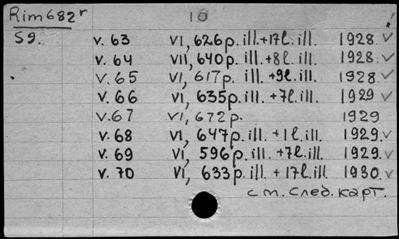 Rim682r 10
S9. v. 63 VI, 626p. ill.+17l. ill. 1928. ✓
v. 64 VII, 640p. ill.+8l. ill. 1928. ✓
v. 65 VI, 617p. ill. +9l. ill. 1928 ✓
v. 66 VI, 635p. ill. +7l. ill. 1929 ✓
v. 67 VI, 672p. 1929
v. 68 VI, 647p. ill. +1l. ill. 1929. ✓
v. 69 VI, 596p. ill. +7l. ill. 1929. ✓
v. 70 VI, 633p. ill. + 17l. ill 1930. ✓
ст. след. карт.